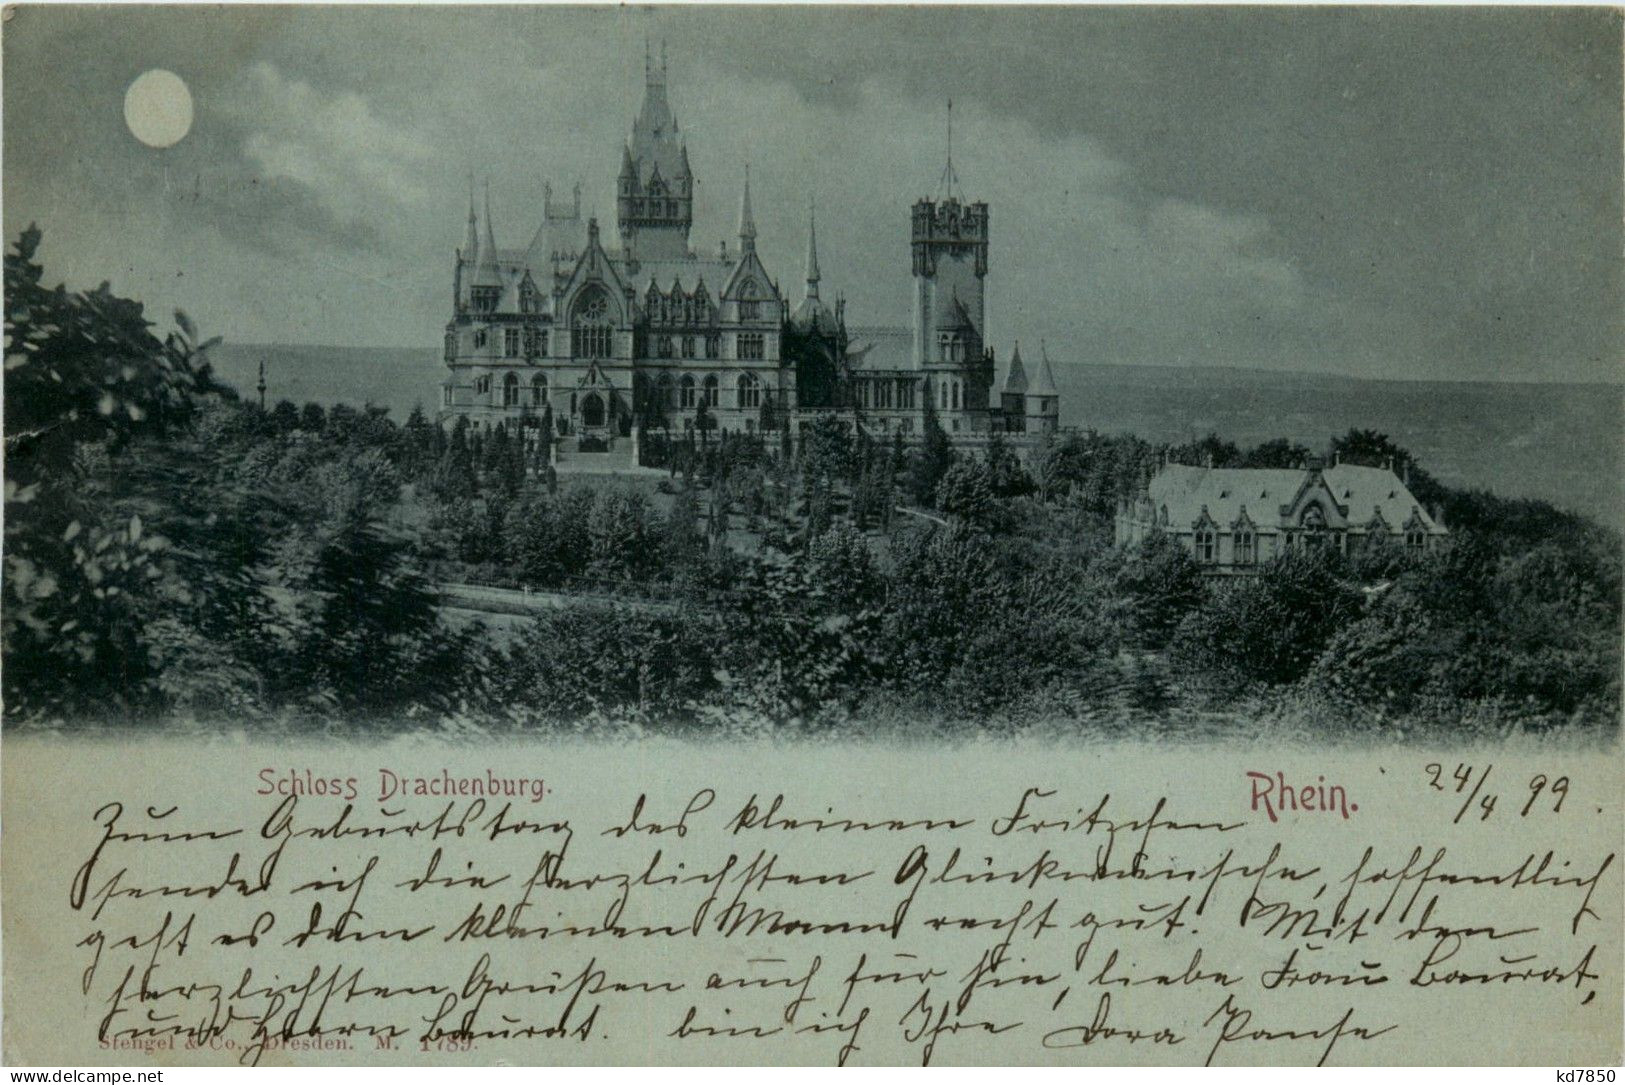 Schloss Drachenburg.
Rhein.
24/4 99.
Zum Geburtstag des kleinen Fritzchen
sende ich die herzlichsten Glückwünsche, hoffentlich
geht es dem kleinen Mann recht gut. Mit den
herzlichsten Grüßen auch für Sie, liebe Frau Baurat,
und Herrn Baurat. bin ich Ihre Dora Panse
Stengel & Co., Dresden. M. 1789.
delcampe.net
kd7850